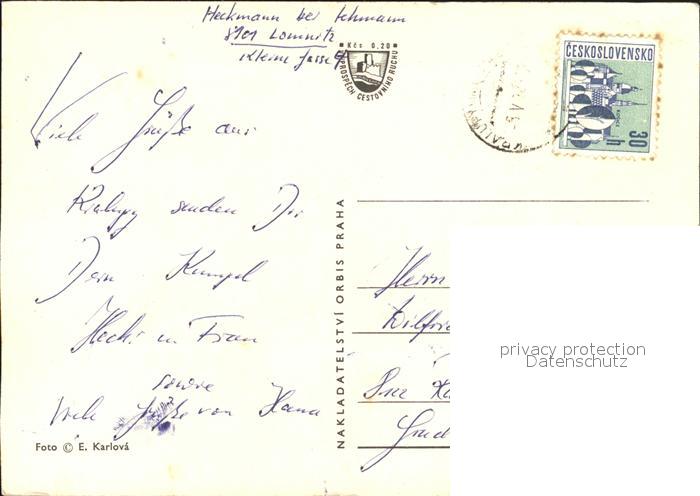 Heckmann bei Lehmann
8101 Lomnitz
Kleine Gasse 9
Kčs 0,20
VE PROSPĚCH CESTOVNÍHO RUCHU
ČESKOSLOVENSKO
30 h
Viele Grüße aus
Kralupy senden Dir
Dein Kumpel
Heck. u. Frau
sowie
Viele Grüße von Hana
Foto © E. Karlová
NAKLADATELSTVÍ ORBIS PRAHA
Herrn
privacy protection
Datenschutz